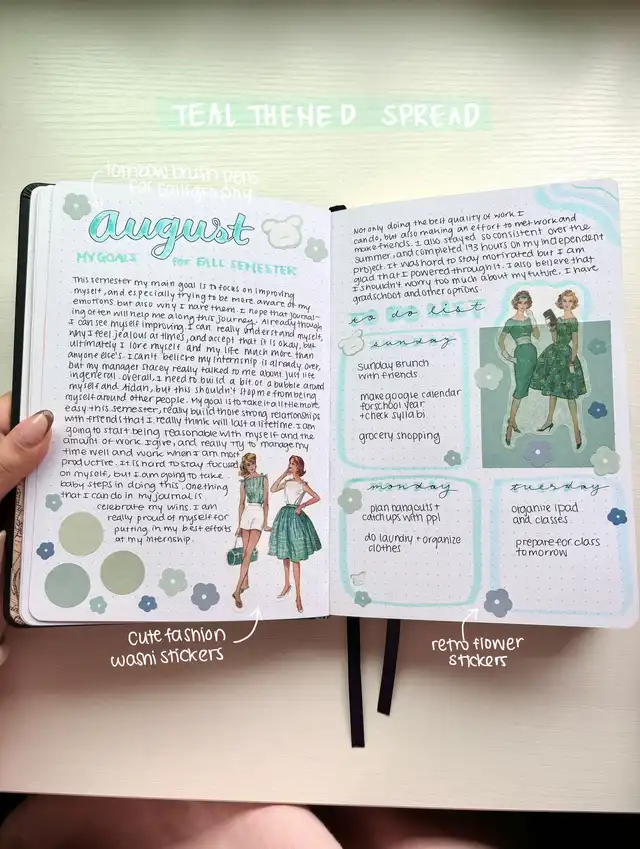 TEAL THEMED SPREAD
tombow brush pens
for calligraphy
august
MY GOALS for FALL SEMESTER
This semester my main goal is to focus on improving
myself, and especially trying to be more aware of my
emotions but also why I have them. I hope that journal-
ing often will help me along this journey. Already though
I can see myself improving. I can really understand myself,
why I feel jealous at times, and accept that it is okay, but
ultimately I love myself and my life much more than
anyone else's. I can't believe my internship is already over,
but my manager Stacey really talked to me about just life
in general. Overall, I need to build a bit of a bubble around
myself and Aidan, but this shouldn't stop me from being
myself around other people. My goal is to take it a little more
easy this semester, really build those strong relationships
with friends that I really think will last a lifetime. I am
going to start being reasonable with myself and the
amount of work I give, and really try to manage my
time well and work when I am most
productive. It is hard to stay focused
on myself, but I am going to take
baby steps in doing this. One thing
that I can do in my journal is
celebrate my wins. I am
really proud of myself for
putting in my best efforts
at my internship.
Not only doing the best quality of work I
can do, but also making an effort to net work and
make friends. I also stayed so consistent over the
summer, and completed 193 hours on my independent
project. It was hard to stay motivated but I am
glad that I powered through it. I also believe that
I shouldn't worry too much about my future. I have
grad school and other options.
to do list
sunday
sunday brunch
with friends
make google calendar
for school year
+ check syllabi
grocery shopping
monday
plan hangouts +
catch ups with ppl
do laundry + organize
clothes
tuesday
organize ipad
and classes
prepare for class
tomorrow
cute fashion
washi stickers
retro flower
stickers